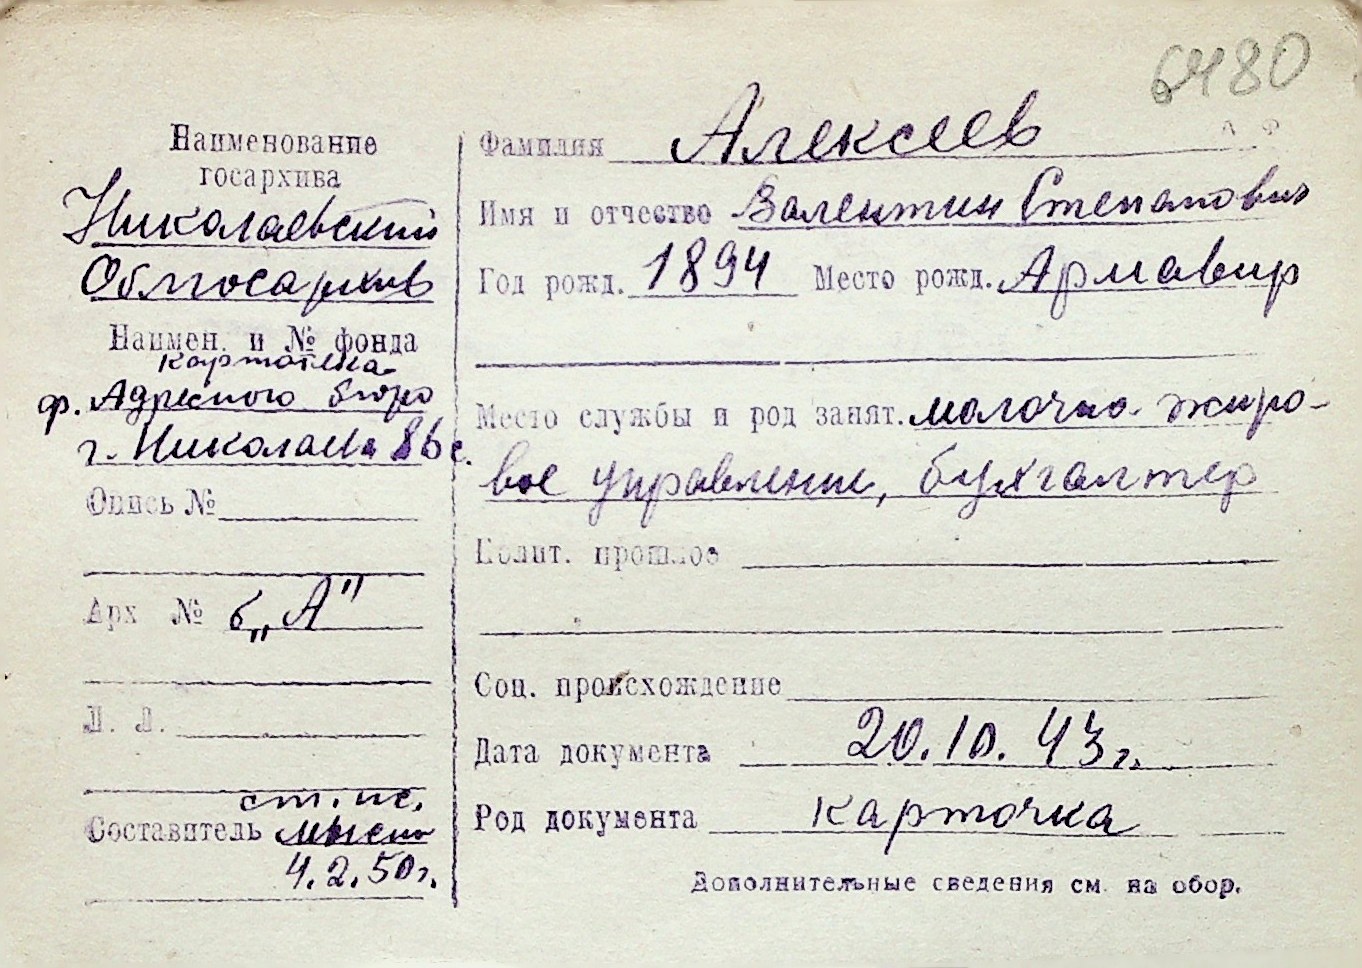 6480
Наименование
госархива
Николаевский
Облгосархив
Наимен. и № фонда
картотека
ф. Адресного бюро
г. Николаева
Опись №
Арх №
б„А"
Л. Л.
ст. нс.
Составитель
4.2.50г.
Фамилия Алексеев
Имя и отчество Валентин Степанович
Год рожд. 1894 Место рожд. Армавир
Место службы и род занят. молочно-жиро-
вое управление, бухгалтер
Полит. прошлое
Соц. происхождение
Дата документа 20.10.43г.
Род документа карточка
Дополнительные сведения см. на обор.